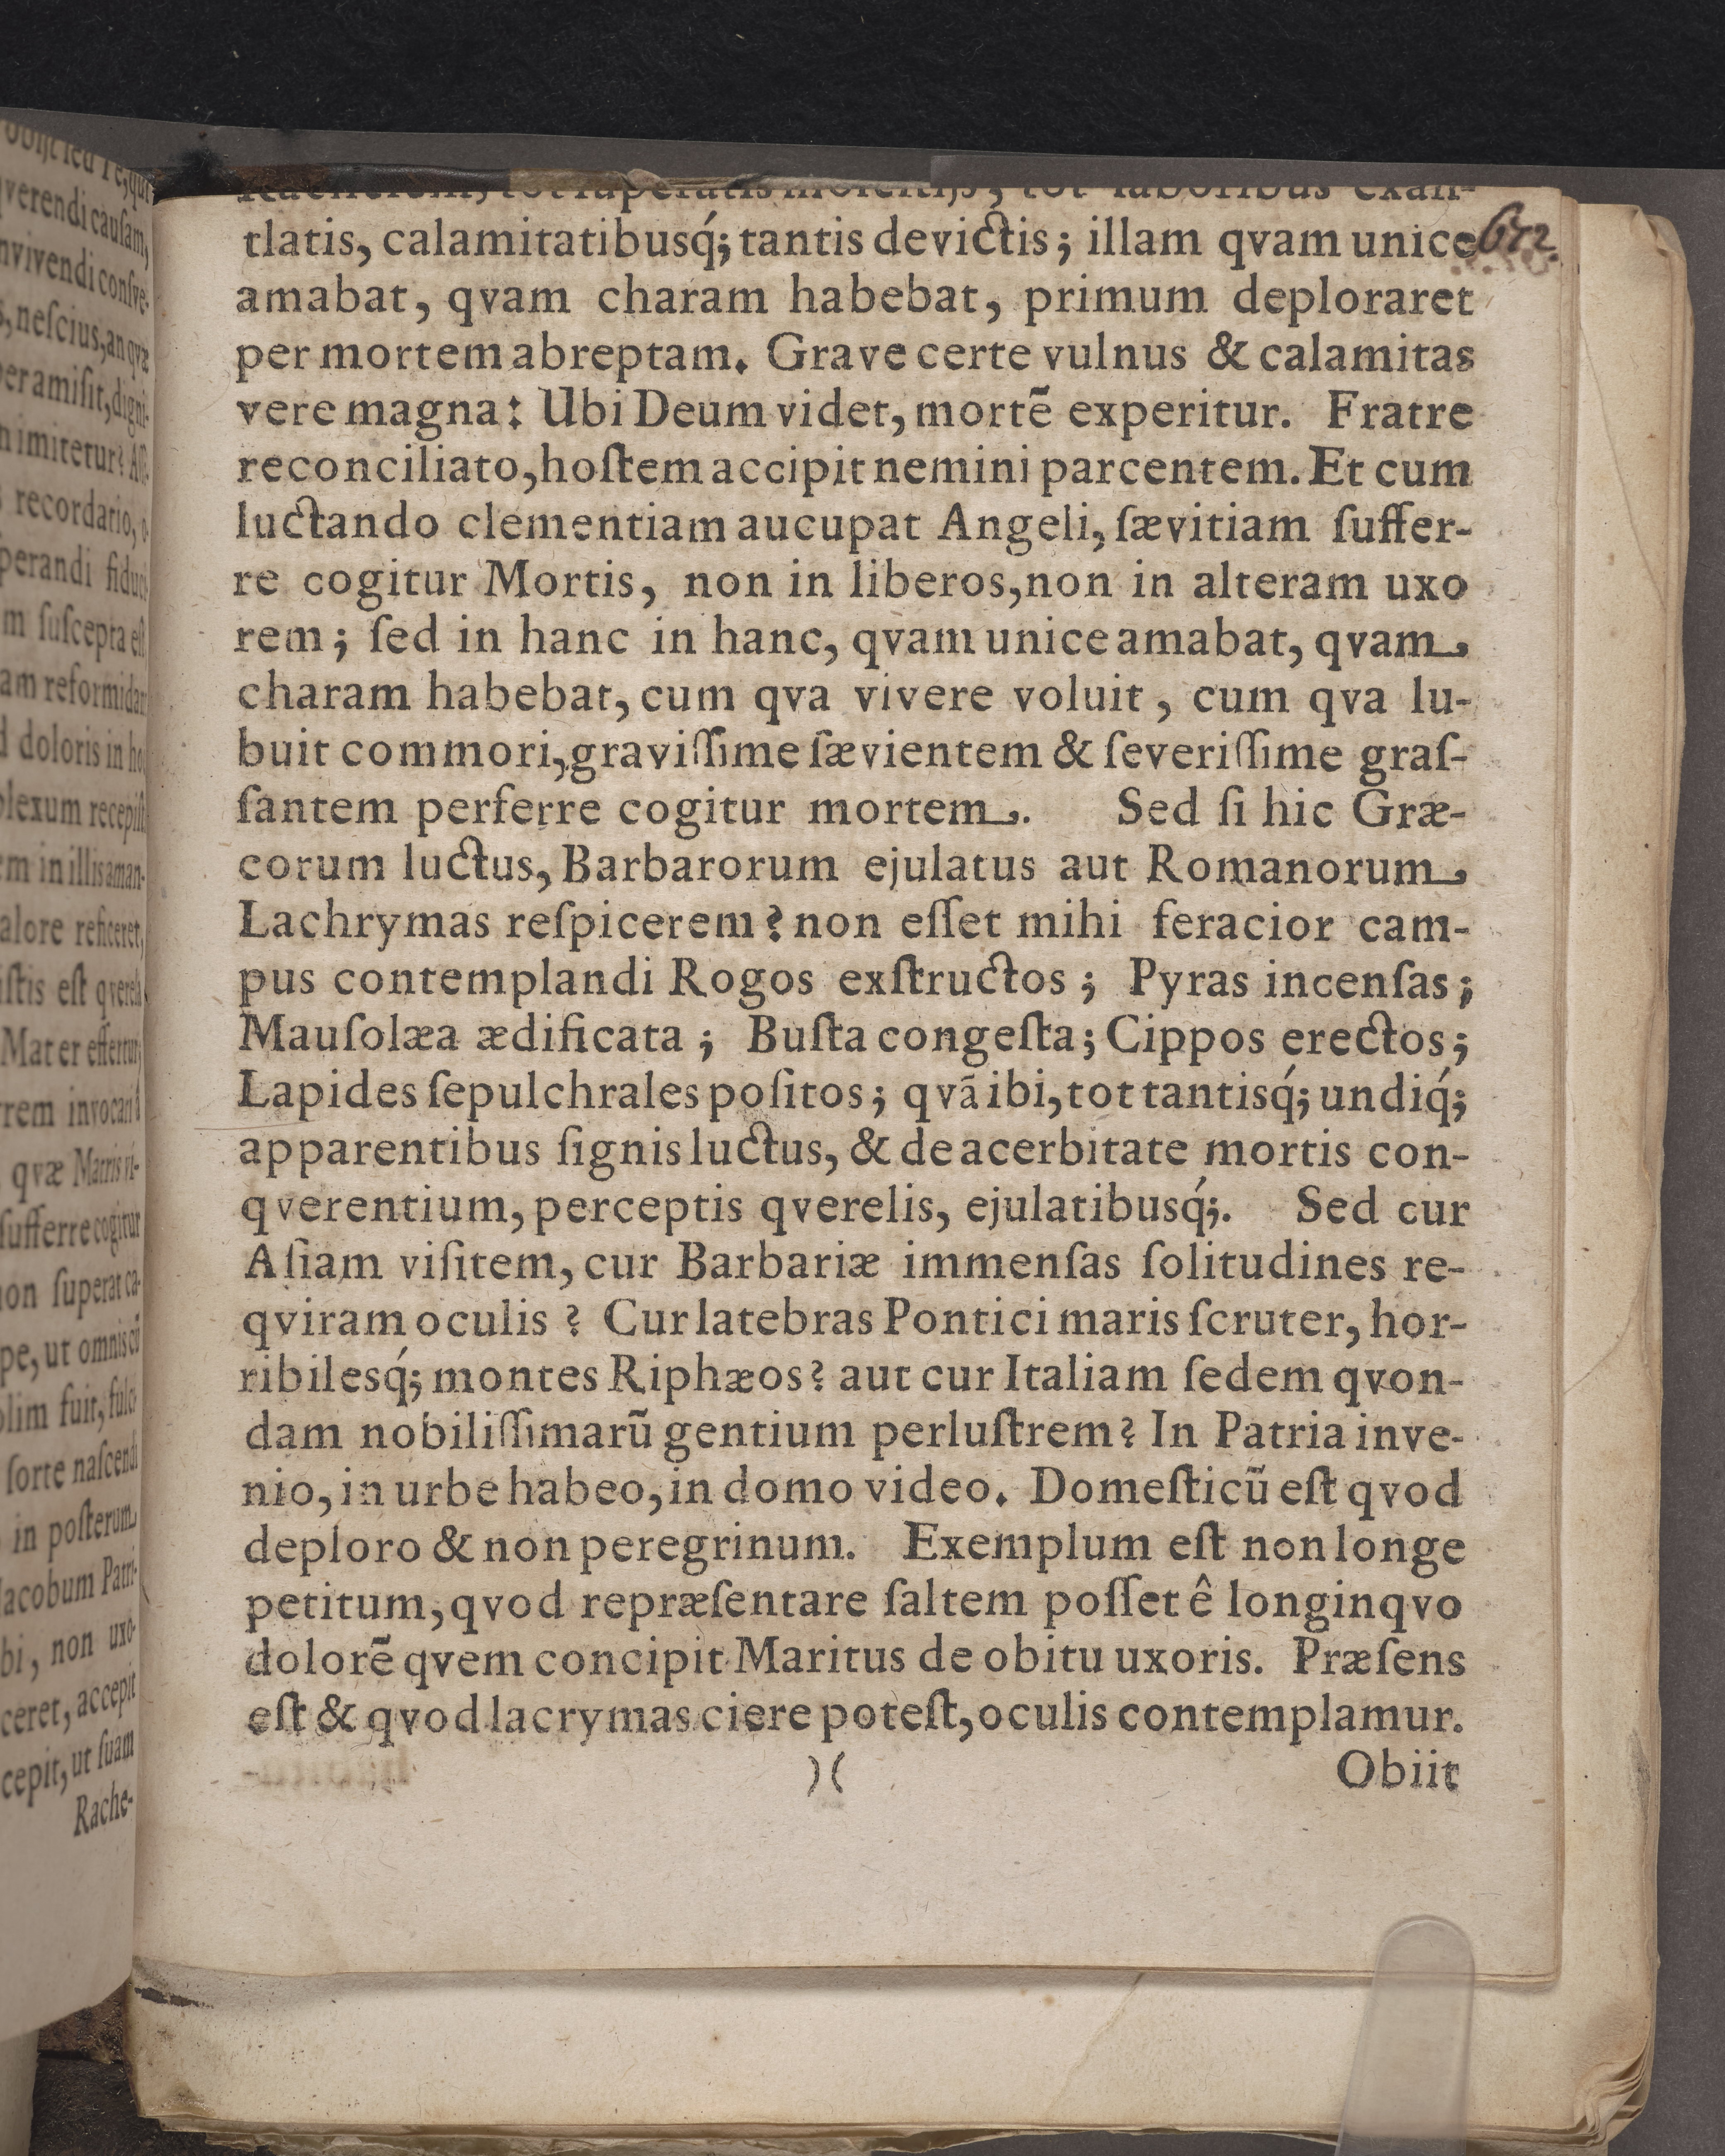 tot laboribus exan-
tlatis, calamitatibusq́; tantis devictis; illam qvam unice
amabat, qvam charam habebat, primum deploraret
per mortem abreptam. Grave certe vulnus & calamitas
vere magna: Ubi Deum videt, mortẽ experitur. Fratre
reconciliato, hoſtem accipit nemini parcentem. Et cum
luctando clementiam aucupat Angeli, ſævitiam ſuffer-
re cogitur Mortis, non in liberos, non in alteram uxo
rem; ſed in hanc in hanc, qvam unice amabat, qvam
charam habebat, cum qva vivere voluit, cum qva lu-
buit commori, graviſſime ſævientem & ſeveriſſime graſ-
ſantem perferre cogitur mortem. Sed ſi hic Græ-
corum luctus, Barbarorum ejulatus aut Romanorum
Lachrymas reſpicerem? non eſſet mihi feracior cam-
pus contemplandi Rogos exſtructos; Pyras incenſas;
Mauſolæa ædificata; Buſta congeſta; Cippos erectos;
Lapides ſepulchrales poſitos; qvã ibi, tot tantisq́; undiq́;
apparentibus ſignis luctus, & de acerbitate mortis con-
qverentium, perceptis qverelis, ejulatibusq́;. Sed cur
Aſiam viſitem, cur Barbariæ immenſas ſolitudines re-
qviram oculis? Cur latebras Pontici maris ſcruter, hor-
ribilesq́; montes Riphæos? aut cur Italiam ſedem qvon-
dam nobiliſſimarũ gentium perluſtrem? In Patria inve-
nio, in urbe habeo, in domo video. Domeſticũ eſt qvod
deploro & non peregrinum. Exemplum eſt non longe
petitum, qvod repræſentare ſaltem poſſet ê longinqvo
dolorẽ qvem concipit Maritus de obitu uxoris. Præſens
eſt & qvod lacrymas ciere poteſt, oculis contemplamur.
)( Obiit